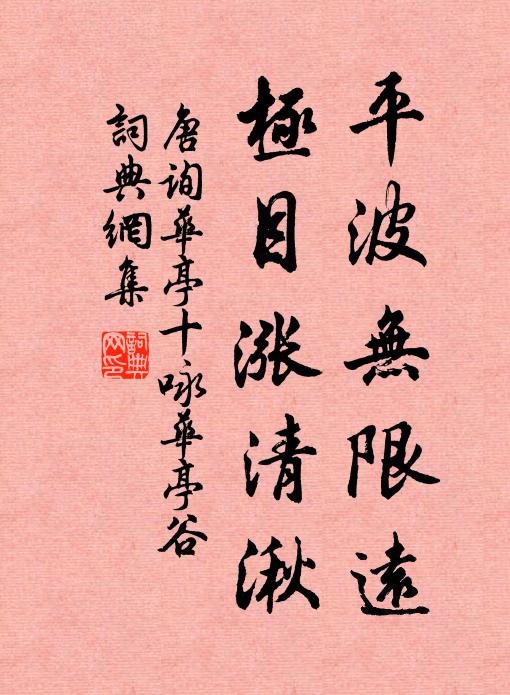 平波無限遠
極目漲清湫
唐詢華亭十咏華亭谷
詞典網集
詞典网印